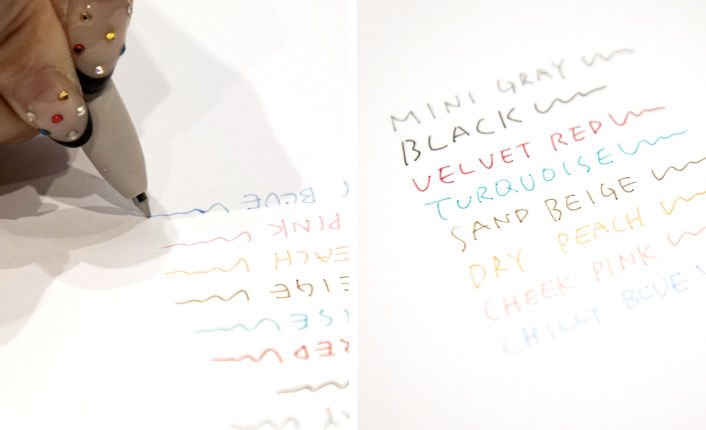 BLUE
PINK
EACH
EIGE
ISE
RED
Y
MINI GRAY
BLACK
VELVET RED
TURQUOISE
SAND BEIGE
DRY PEACH
CHEEK PINK
CHILLY BLUE